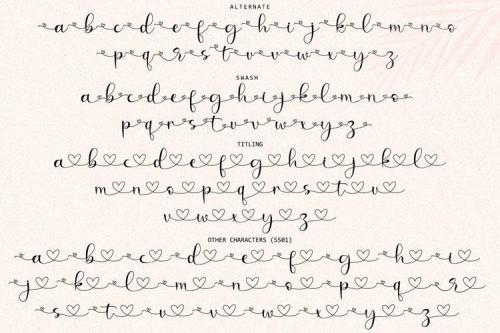 ALTERNATE
abcdefghijklmno
pqrstuvwxyz
SWASH
abcdefghijklmno
pqrstuvwxyz
TITLING
a b c d e f g h i j k l
m n o p q r s t u v
v w x y z
OTHER CHARACTERS (SS01)
a b c d e f g h i
j k l m n o p q r
s t u v w x y z